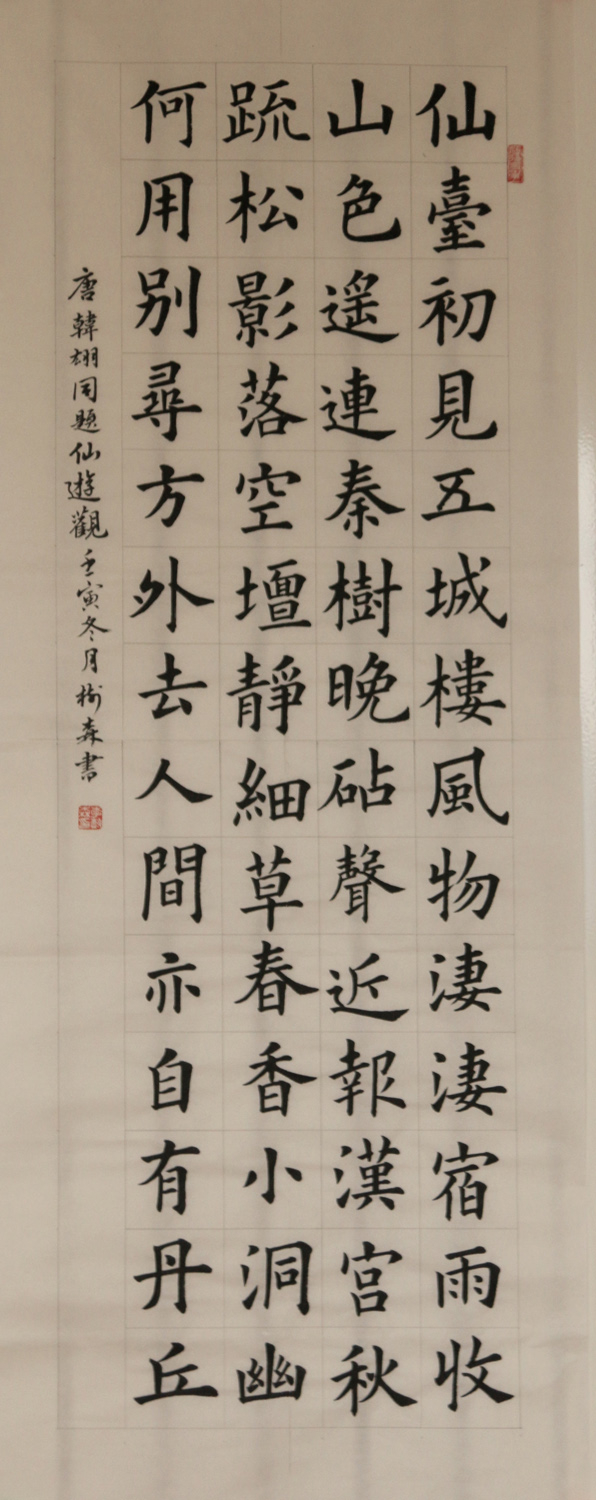 仙臺初見五城樓風物淒淒宿雨收
山色遥連秦樹晚砧聲近報漢宮秋
䟽松影落空壇靜細草春香小洞幽
何用别尋方外去人間亦自有丹丘
唐韓翃同題仙遊觀壬寅冬月樹森書